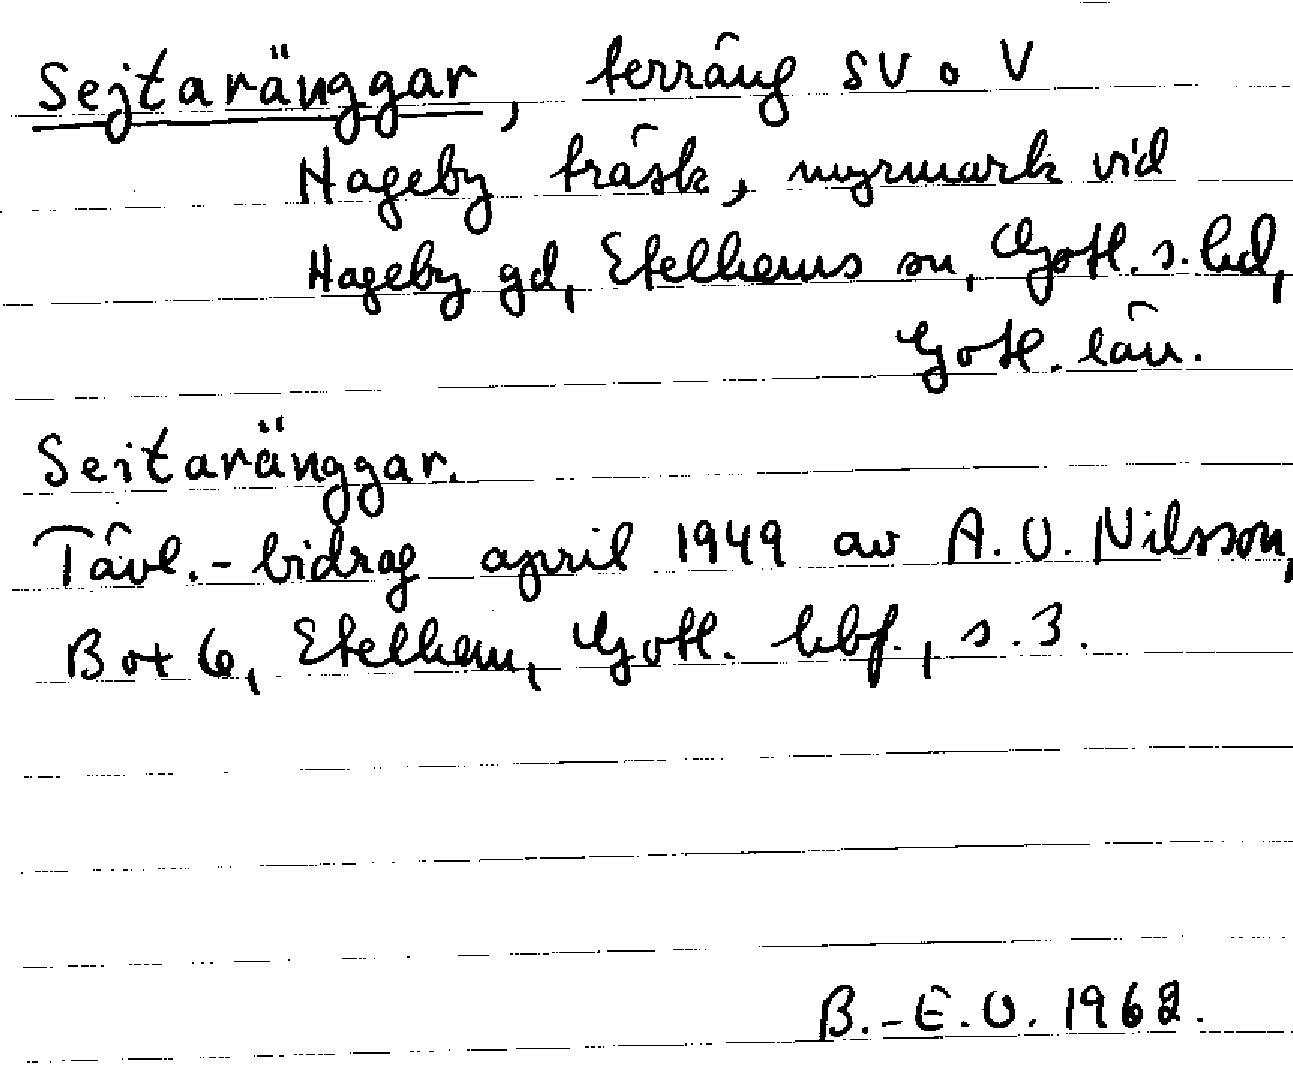 Sejtaränggar, terräng SV o V
Hageby träsk, myrmark vid
Hageby gd, Etelhems sn, Gotl. s. hd,
Gotl. län.
Seitaränggar.
Tävl.-bidrag april 1949 av A. V. Nilsson,
Box 6, Etelhem, Gotl. hbf., s. 3.
B.-E. O. 1962.